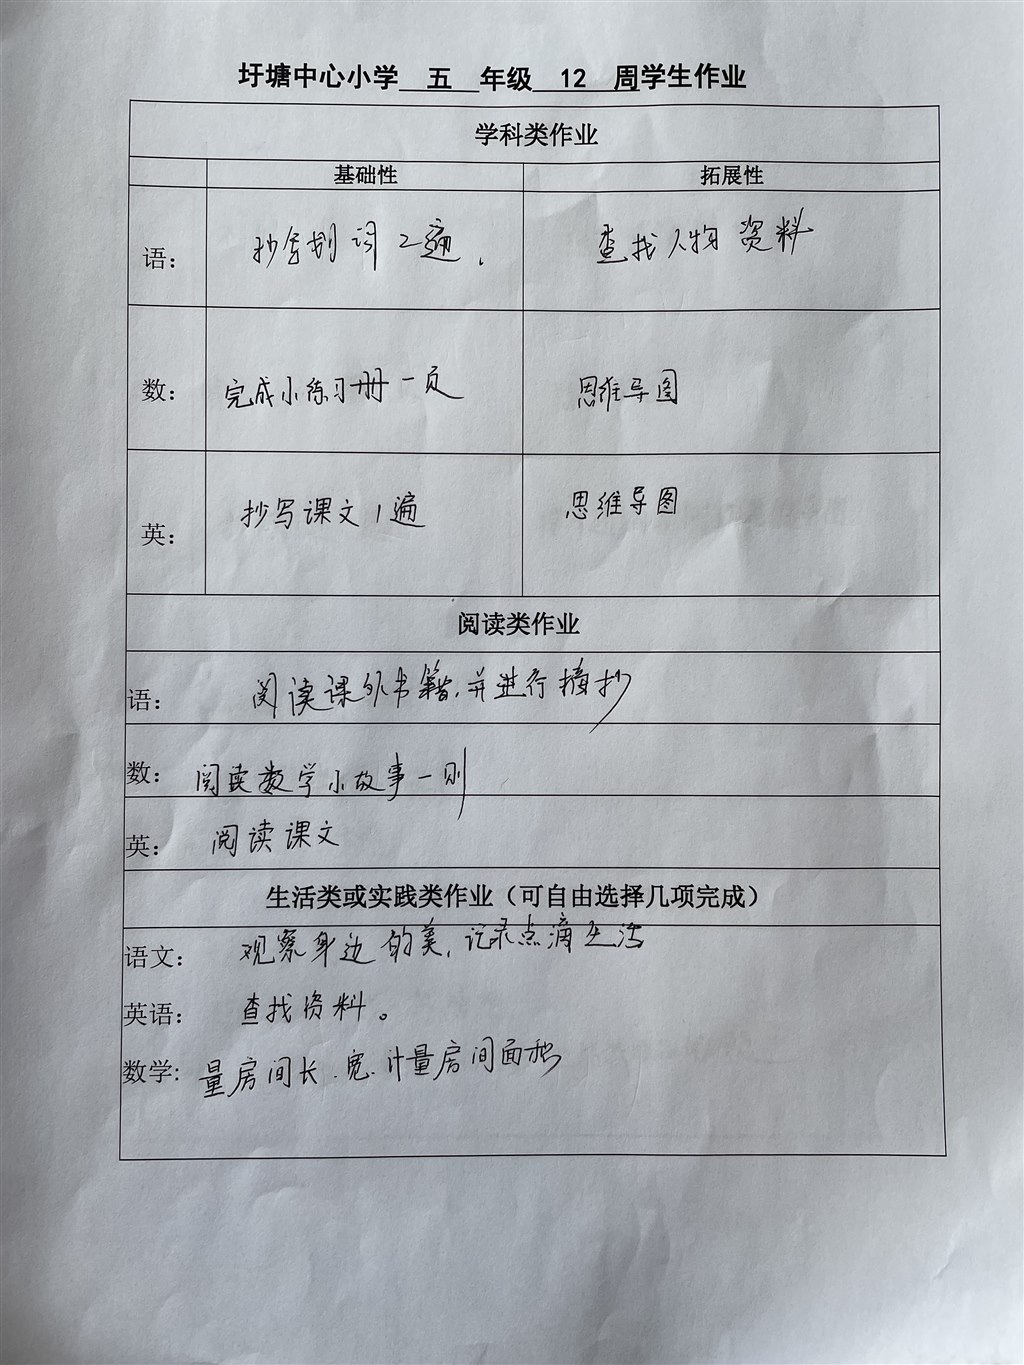 圩塘中心小学 五 年级 12 周学生作业
学科类作业
基础性 拓展性
语： 抄写划词2遍. 查找人物资料
数： 完成小练习册一页 思维导图
英： 抄写课文1遍 思维导图
阅读类作业
语： 阅读课外书籍,并进行摘抄
数： 阅读数学小故事一则
英： 阅读课文
生活类或实践类作业（可自由选择几项完成）
语文： 观察身边的美,记录点滴生活
英语： 查找资料。
数学: 量房间长.宽.计量房间面积